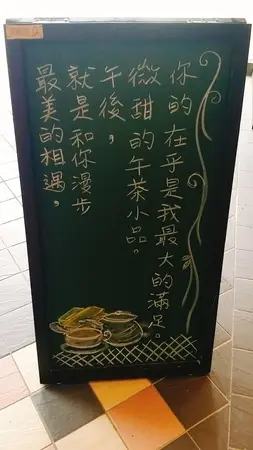 你的在乎是我最大的滿足。
微甜的午茶小品。
午後，
就是和你漫步
最美的相遇。